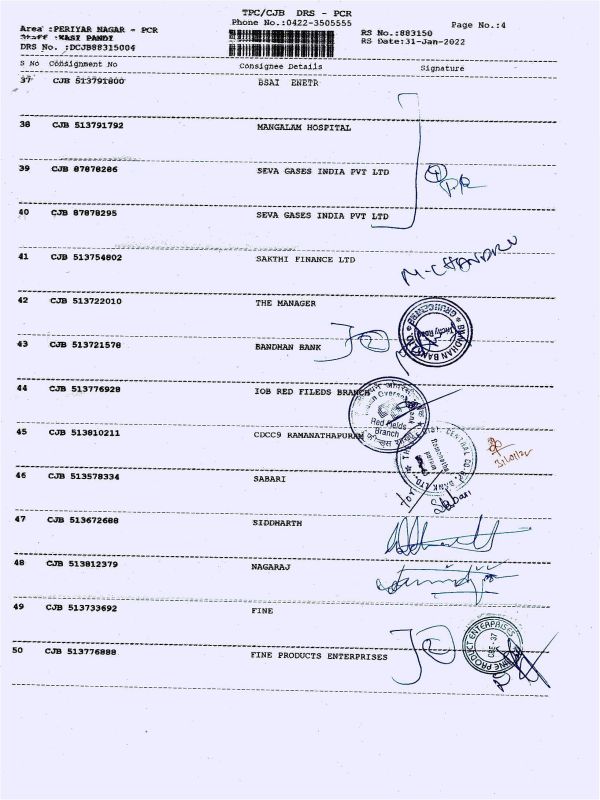 TPC/CJB DRS - PCR
Phone No.:0422-3505555
Page No.:4
Area :PERIYAR NAGAR - PCR
Staff :KASI PANDI
DRS No. :DCJB88315004
RS No.:883150
RS Date:31-Jan-2022
S No Consignment No Consignee Details Signature
37 CJB 513791800 BSAI ENETR
38 CJB 513791792 MANGALAM HOSPITAL
39 CJB 87878286 SEVA GASES INDIA PVT LTD
40 CJB 87878295 SEVA GASES INDIA PVT LTD
41 CJB 513754802 SAKTHI FINANCE LTD
M-CHANDRU
42 CJB 513722010 THE MANAGER
43 CJB 513721578 BANDHAN BANK
BANDHAN BANK LTD
44 CJB 513776928 IOB RED FILEDS BRANCH
Red Fields
Branch
45 CJB 513810211 CDCC9 RAMANATHAPURAM
46 CJB 513578334 SABARI
Sabari
47 CJB 513672688 SIDDHARTH
48 CJB 513812379 NAGARAJ
49 CJB 513733692 FINE
50 CJB 513776888 FINE PRODUCTS ENTERPRISES
FINE PRODUCT ENTERPRISES
CBE-37